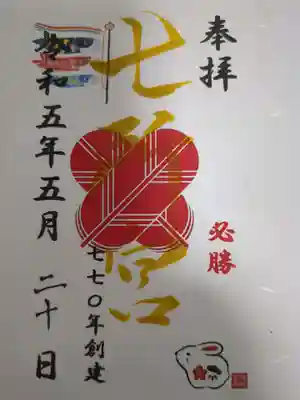 奉拝
必勝
七宮
七七〇年創建
令和五年五月二十日